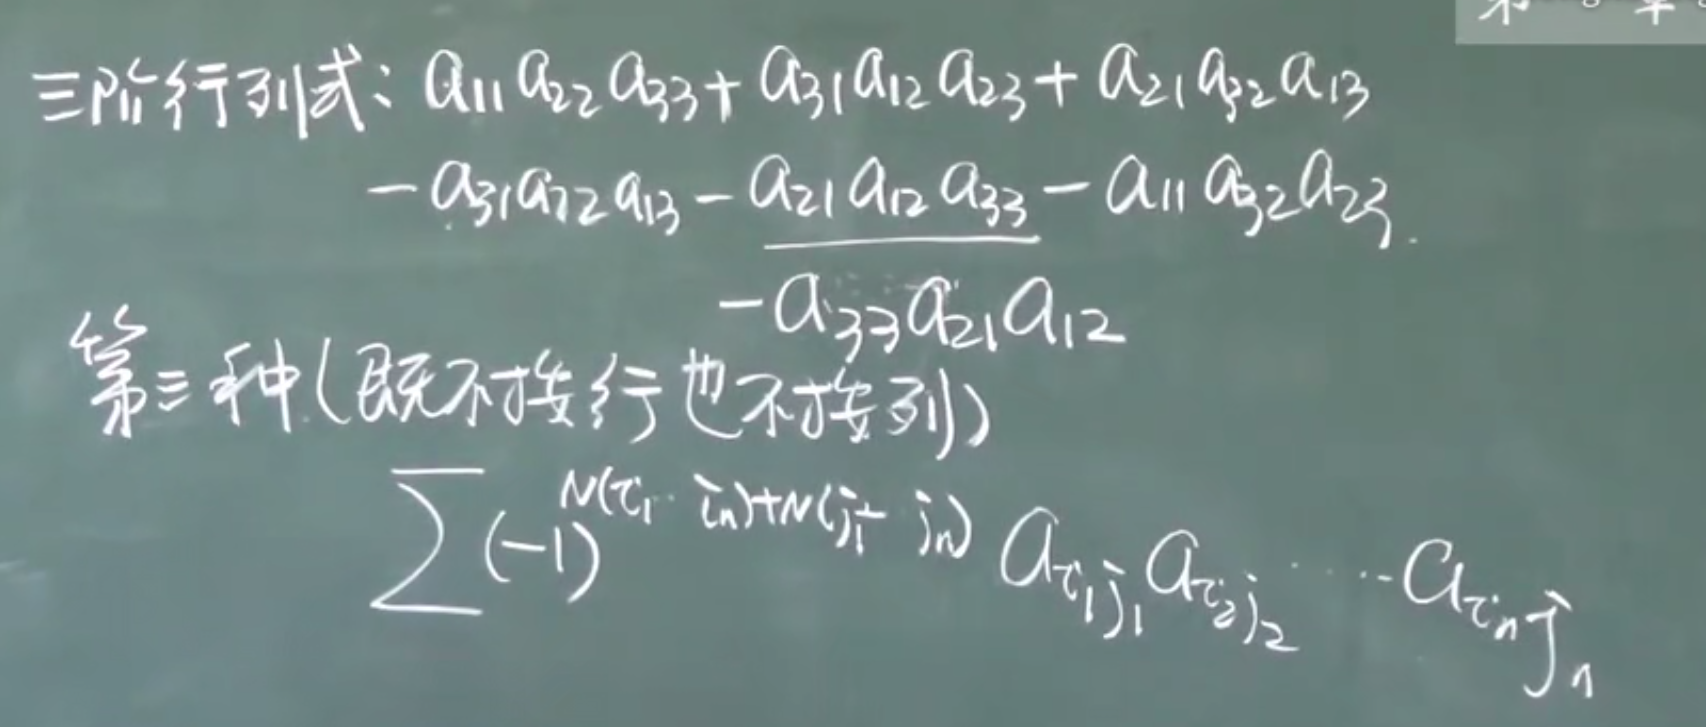 三阶行列式: a₁₁a₂₂a₃₃+a₃₁a₁₂a₂₃+a₂₁a₃₂a₁₃
-a₃₁a₂₂a₁₃-a₂₁a₁₂a₃₃-a₁₁a₃₂a₂₃.
-a₃₃a₂₁a₁₂
第三种(既不按行也不按列)
∑(-1)^{N(i₁…iₙ)+N(j₁…jₙ)} a_{i₁j₁}a_{i₂j₂}……a_{iₙjₙ}